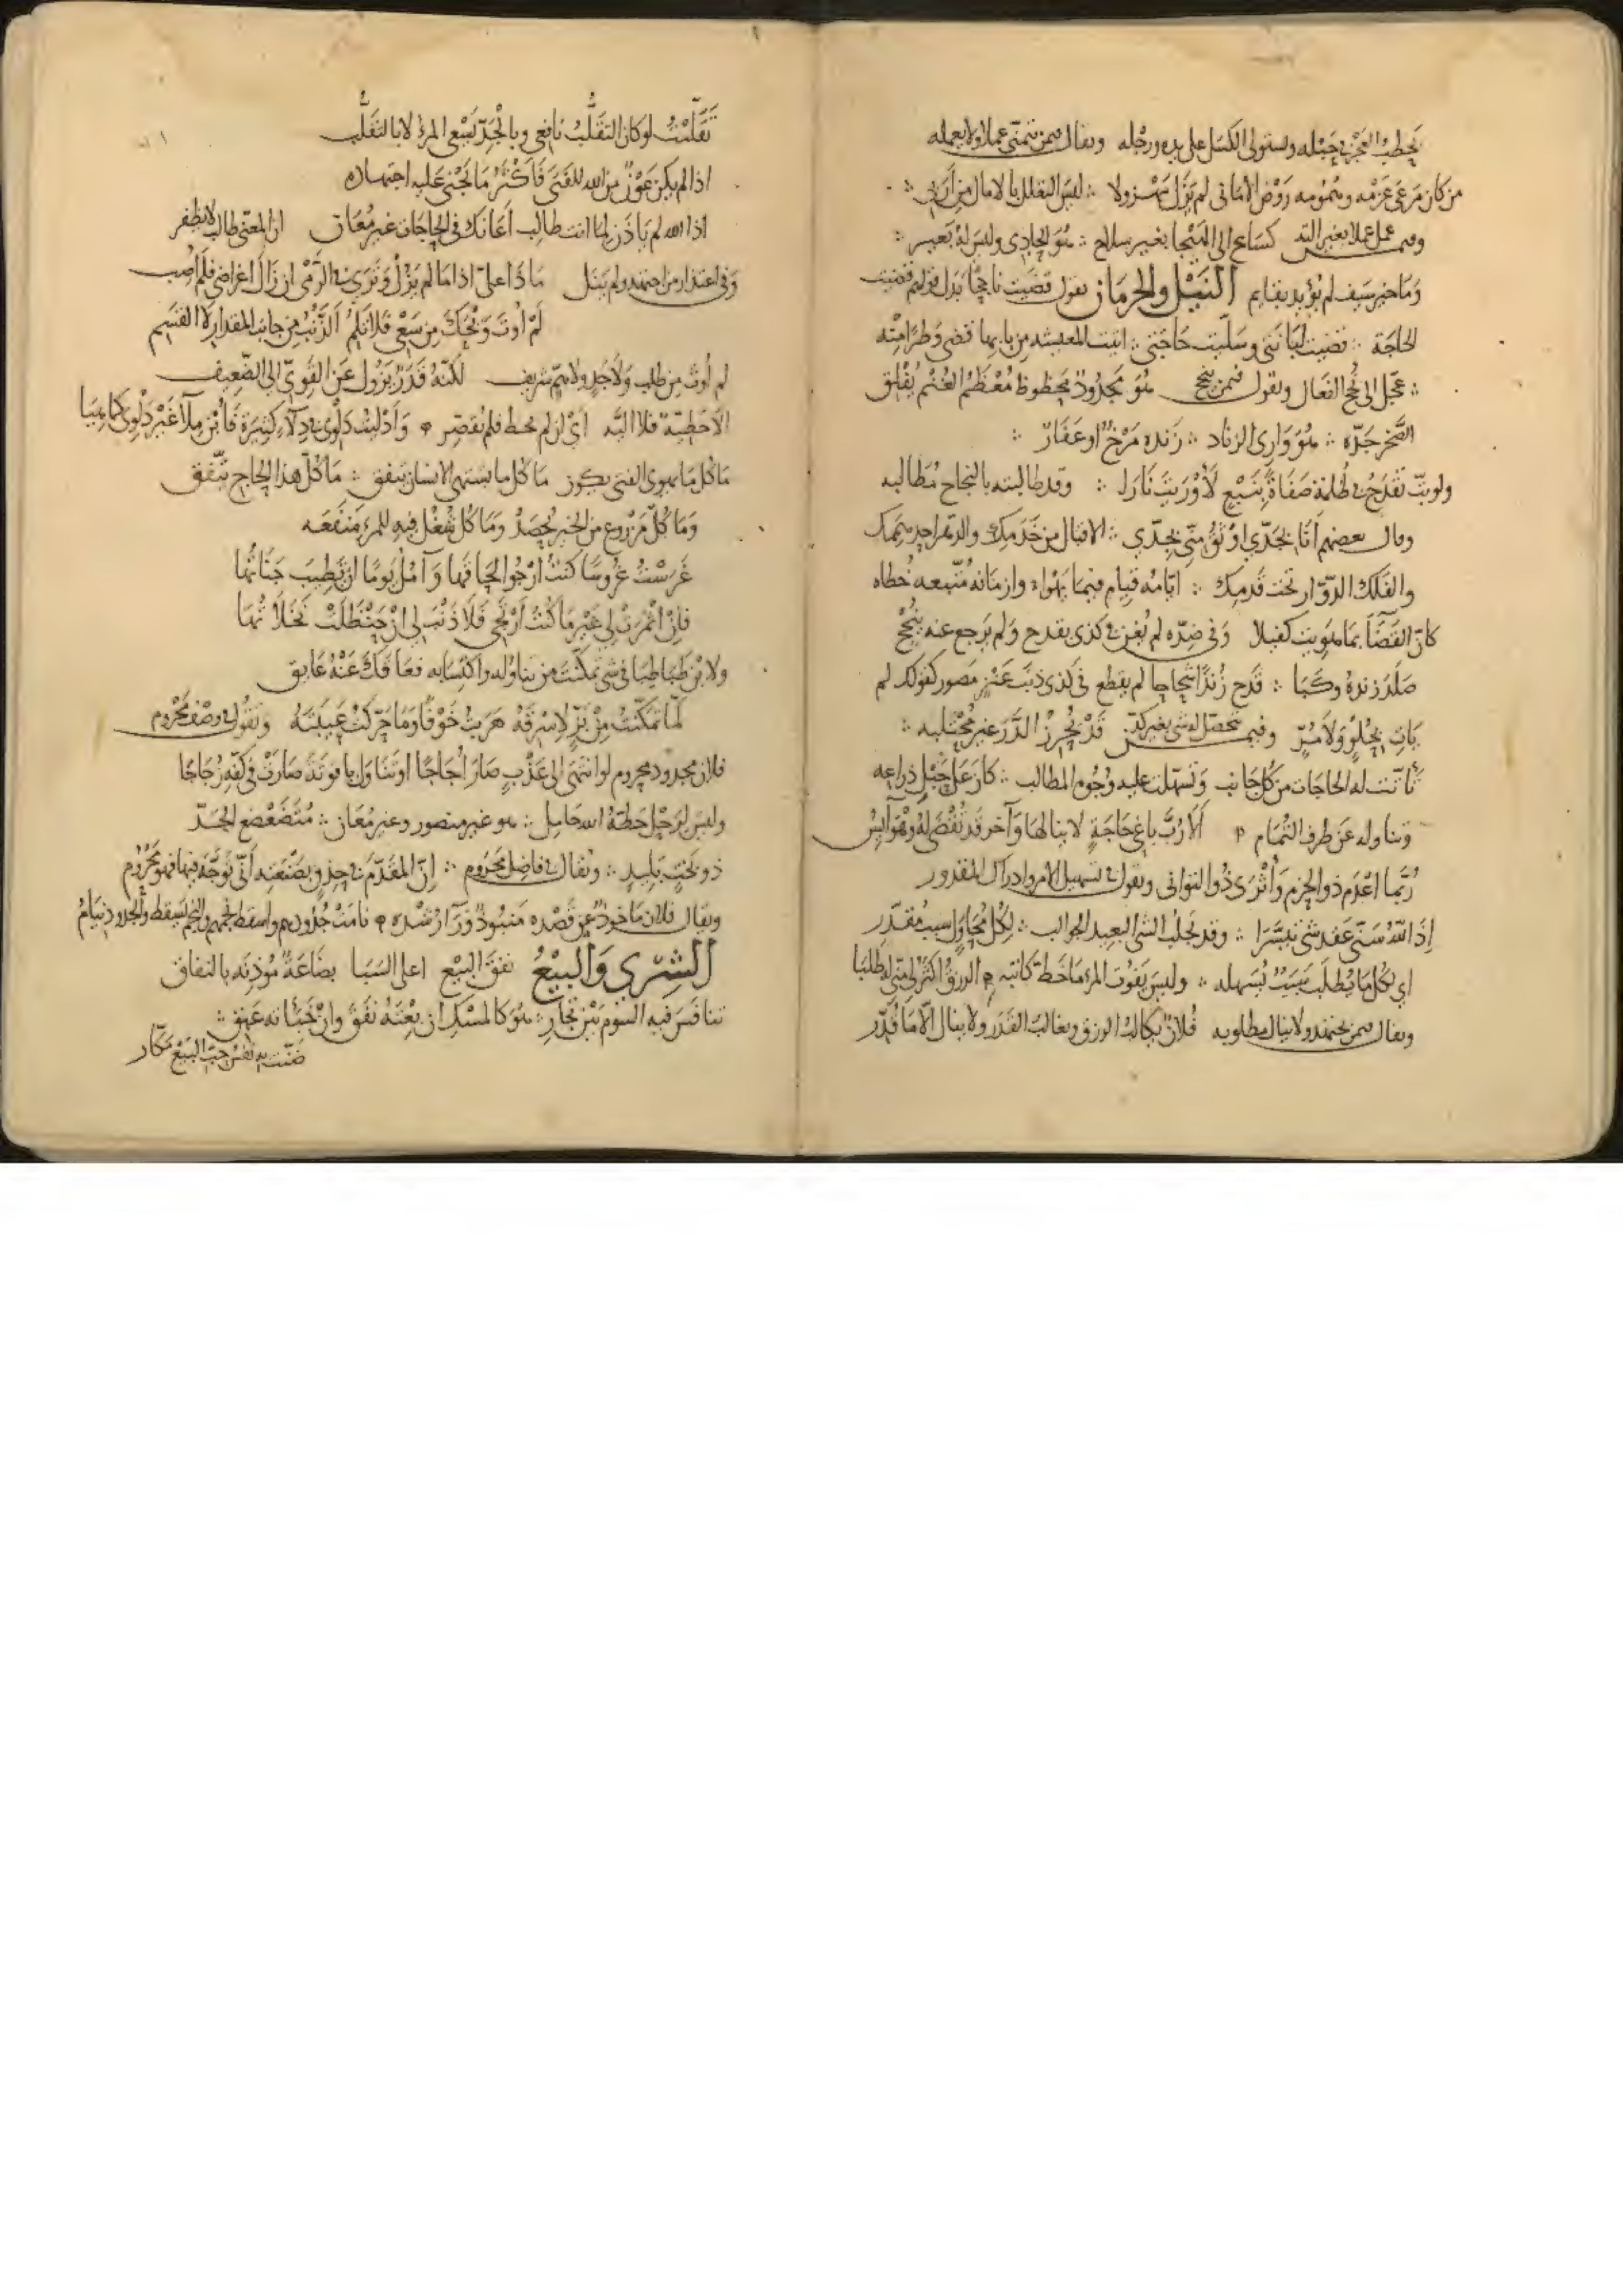 يحطب العجز في حبله ويستولي الكسل على يده ورجله ويقال فيمن يتمنى عملا ولا يعمله
من كان مرعى عزمه وهمومه روض الاماني لم يزل مهزولا ∴ ليس التعلل بالامال من أربي ∴
وفيمن عمل عملا بغير آلته كساع الى الهيجا بغير سلاح ∴ هو كالحادي وليس له بعير ∴
وما خير سيف لم يؤيد بقايم النَيْل والحرمان تقول قضيت ناجحًا بدل قولهم قضيت
الحاجة ∴ قضيت لبانتي وسليت حاجتي ∴ اتيت المعيشه من بابها قضى وطرا منه
∴ عجل الى نجح الفعال ويقول فيمن ينجح هُو مجدُودٌ محظوظ مُعْظَمُ الغُنْم يُفْلِق
الصَّخر جَدّه ∴ هُوَ وَارِى الزناد ∴ زَنده مَرْخٌ او عَفَارٌ ∴
ولو بتّ تقدَحُ في ظُلمَةٍ صَفَاةً بِنَبْعٍ لَأَوْرَيْتَ نَارَا ∴ وقد طالبته بالنجاح مطالبه
وقال بعضهم أنا بجَدّي اوثقُ منّي بجِدّي ∴ الاقبال من خَدَمِك والدهر احد حشمك
والفلك الدوّار تحت قدمِك ∴ ايّامُه قيام فيما يهواه وازمَانهُ متّبعه خُطاه
كانّ القضَاَ بمَا هوِيت كفيلا وَفي ضِدّه لم يُغْن كذى يقدح وَلم يَرجع عنه بنُجْح
صَلَدَ زندهُ وكَبَا ∴ قدح زندًا شحاحا لم يقطع في كذى ذنَبَ عَنْزٍ مَصُور كقولك لم
يَاتِ بِحُلْوٍ وَلَا مُرّ وفيمن تحصّل له شي بغير كدّ قَدْ يُحرزُ الدَّرَ غير مُحْتَلبِه ∴
تأتّت له الحاجات من كل جَانب وَتسَهّلت عليه وجُوه المطالب ∴ كانَ عَلى حَبْلِ ذِراعِه
وتناوله عَن طرف الثُمَام ألَا رُبَّ بَاغِي حَاجَةٍ لا يَنالها وآخر قد تُقْضَى لهُ وهْوَ آيِسُ
رُبَّما اعْدَم ذو الحزم وَأَثْرَى ذُو التوانى ويقول في تسهيل الامر وادراك المقدور
إِذَا اللهُ سَنّى عقد شئ تيسَّرَا ∴ وقد يَجلبُ الشئَ البعيدَ الجوالب ∴ لِكُل مُحَاوَلٍ سبب مُقَدّر
اي لكل مَا يُطلَب سَبَبٌ يُسَهله ∴ وليسَ يَفُوت المرَء مَا خَطّ كاتبه الرزقُ اكثرُ لي منّي له طلبَا
ويقال فيمن يجتهد ولا ينال مطلوبه فُلانٌ يُكالبُ الرزق ويغالبُ القدَر ولا ينال الّا مَا قُدّر
تَقَلّبْتُ لو كان التقَلُّبُ نَافِعي وبالجَدّ يَسْعى المرءُ لا بالتقَلّب
اذا لم يكن عَوْنٌ من الله للفتى فَأكْثَرُ مَا يَجْنى عَليه اجتهاده
اذا الله لم يَاذَن لما انت طالب أَعَانَك في الحاجَات غير مُعَان ان المعنّى طالب لا يظفر
وَفي اعتذار من اجتهد ولم يَنَل مَا ذَا علىّ اذا مَا لم يَزُلْ وَتَرِى في الرَّمْى ان زَالَ اغراضى فلَمْ أُصِب
لَمْ أُوتَ وَيْحَكَ مِن سَعْي فَلا تَلُمِ الذَّنْبُ مِن جانب المقدار لا القَسَم
لم أُوتَ مِن طلب وَلا جُدٍ ولا همّ شريف لكنّهُ قَدَرٌ يَزُولُ عَن القَوِيّ الى الضَّعِيف
الّا حَظِيّة فلا أليَّه أىْ ان لم تحظ فلم تقصر وَأَدْلَيْت دَلْوِى في دِلآءٍ كثيرَةٍ فَأُبْنَ مِلآً غَيْرَ دَلْوِى كما هيَا
مَا كُل مَا يهوى الفتى يكون مَا كل ما يشتهى الانسان يتفق ∴ مَا كُلّ هذا الحاج يتّفق
وَمَا كُلّ مَزْروعٍ من الخير يُحصَدُ وَمَا كل شُغْلٍ فيه للمرءِ مَنفَعَه
غَرَسْتُ غُرُوسًا كنتُ أرْجُو لحَاقَها وَآمُلُ يَومًا ان تَطِيبَ جَنَاتُها
فإِنْ اثْمَرَتْ لي غيْرَ مَا كُنْتُ أرْتَجي فَلَا ذَنْبَ لي ان حَنْظَلَتْ نَخَلاتُها
ولابْن طَبَاطِبَا في شي تَمكّنْتَ من تناوُله واكتِسَابه فعَاقك عَنْهُ عَايق
لَمّا تمَكّنْتُ مِنْ بَزٍّ لِاسْرقَهُ هَرَبتُ خَوْفًا وَمَا حَرّكتُ عَيبَتَهُ ويَقُولُ في وصْف مَحْرُوم
فلان مجدود محروم لو انتهى الى عَذْبٍ صَارَ أُجَاجًا او تَنَاوَل يا قوتَةً صَارَتْ في كفّهِ زُجَاجًا
وليسَ لرَحْلٍ حَطّهُ الله حَامِل ∴ هو غير منصور وغير مُعَان ∴ مُتَضَعْضع الجَدّ
ذو بَخْتٍ بَليدٍ ∴ ويُقال في فاضِل مَحرُوم ∴ إنّ المقدّمَ في حِذقٍ بصَنْعَتِه أنّى تَوَجّهَ فيها فهو مَحْرُوم
ويقال فلان مَاخوذٌ عن قَصْده مَنبُوذٌ وَرَآ رُشْدِه نامَتْ جُدُودُهم واسقط نجمهم والنجم يَسقط والجدود نِيَامُ
الشِرَى وَالبيْعُ نفَقَ البيْع اعلى السَبَا بضَاعَة مُوذِنَه بالنفاق
تنافسَ فيه السَوم بَيْن تجار ∴ هُوَ كالمسْكِ ان بعْتَهُ نَفَقَ وان خَبَأته عَبِق ∴
ضَنّتْ به نفس حَبّ البَيْع مَكّار